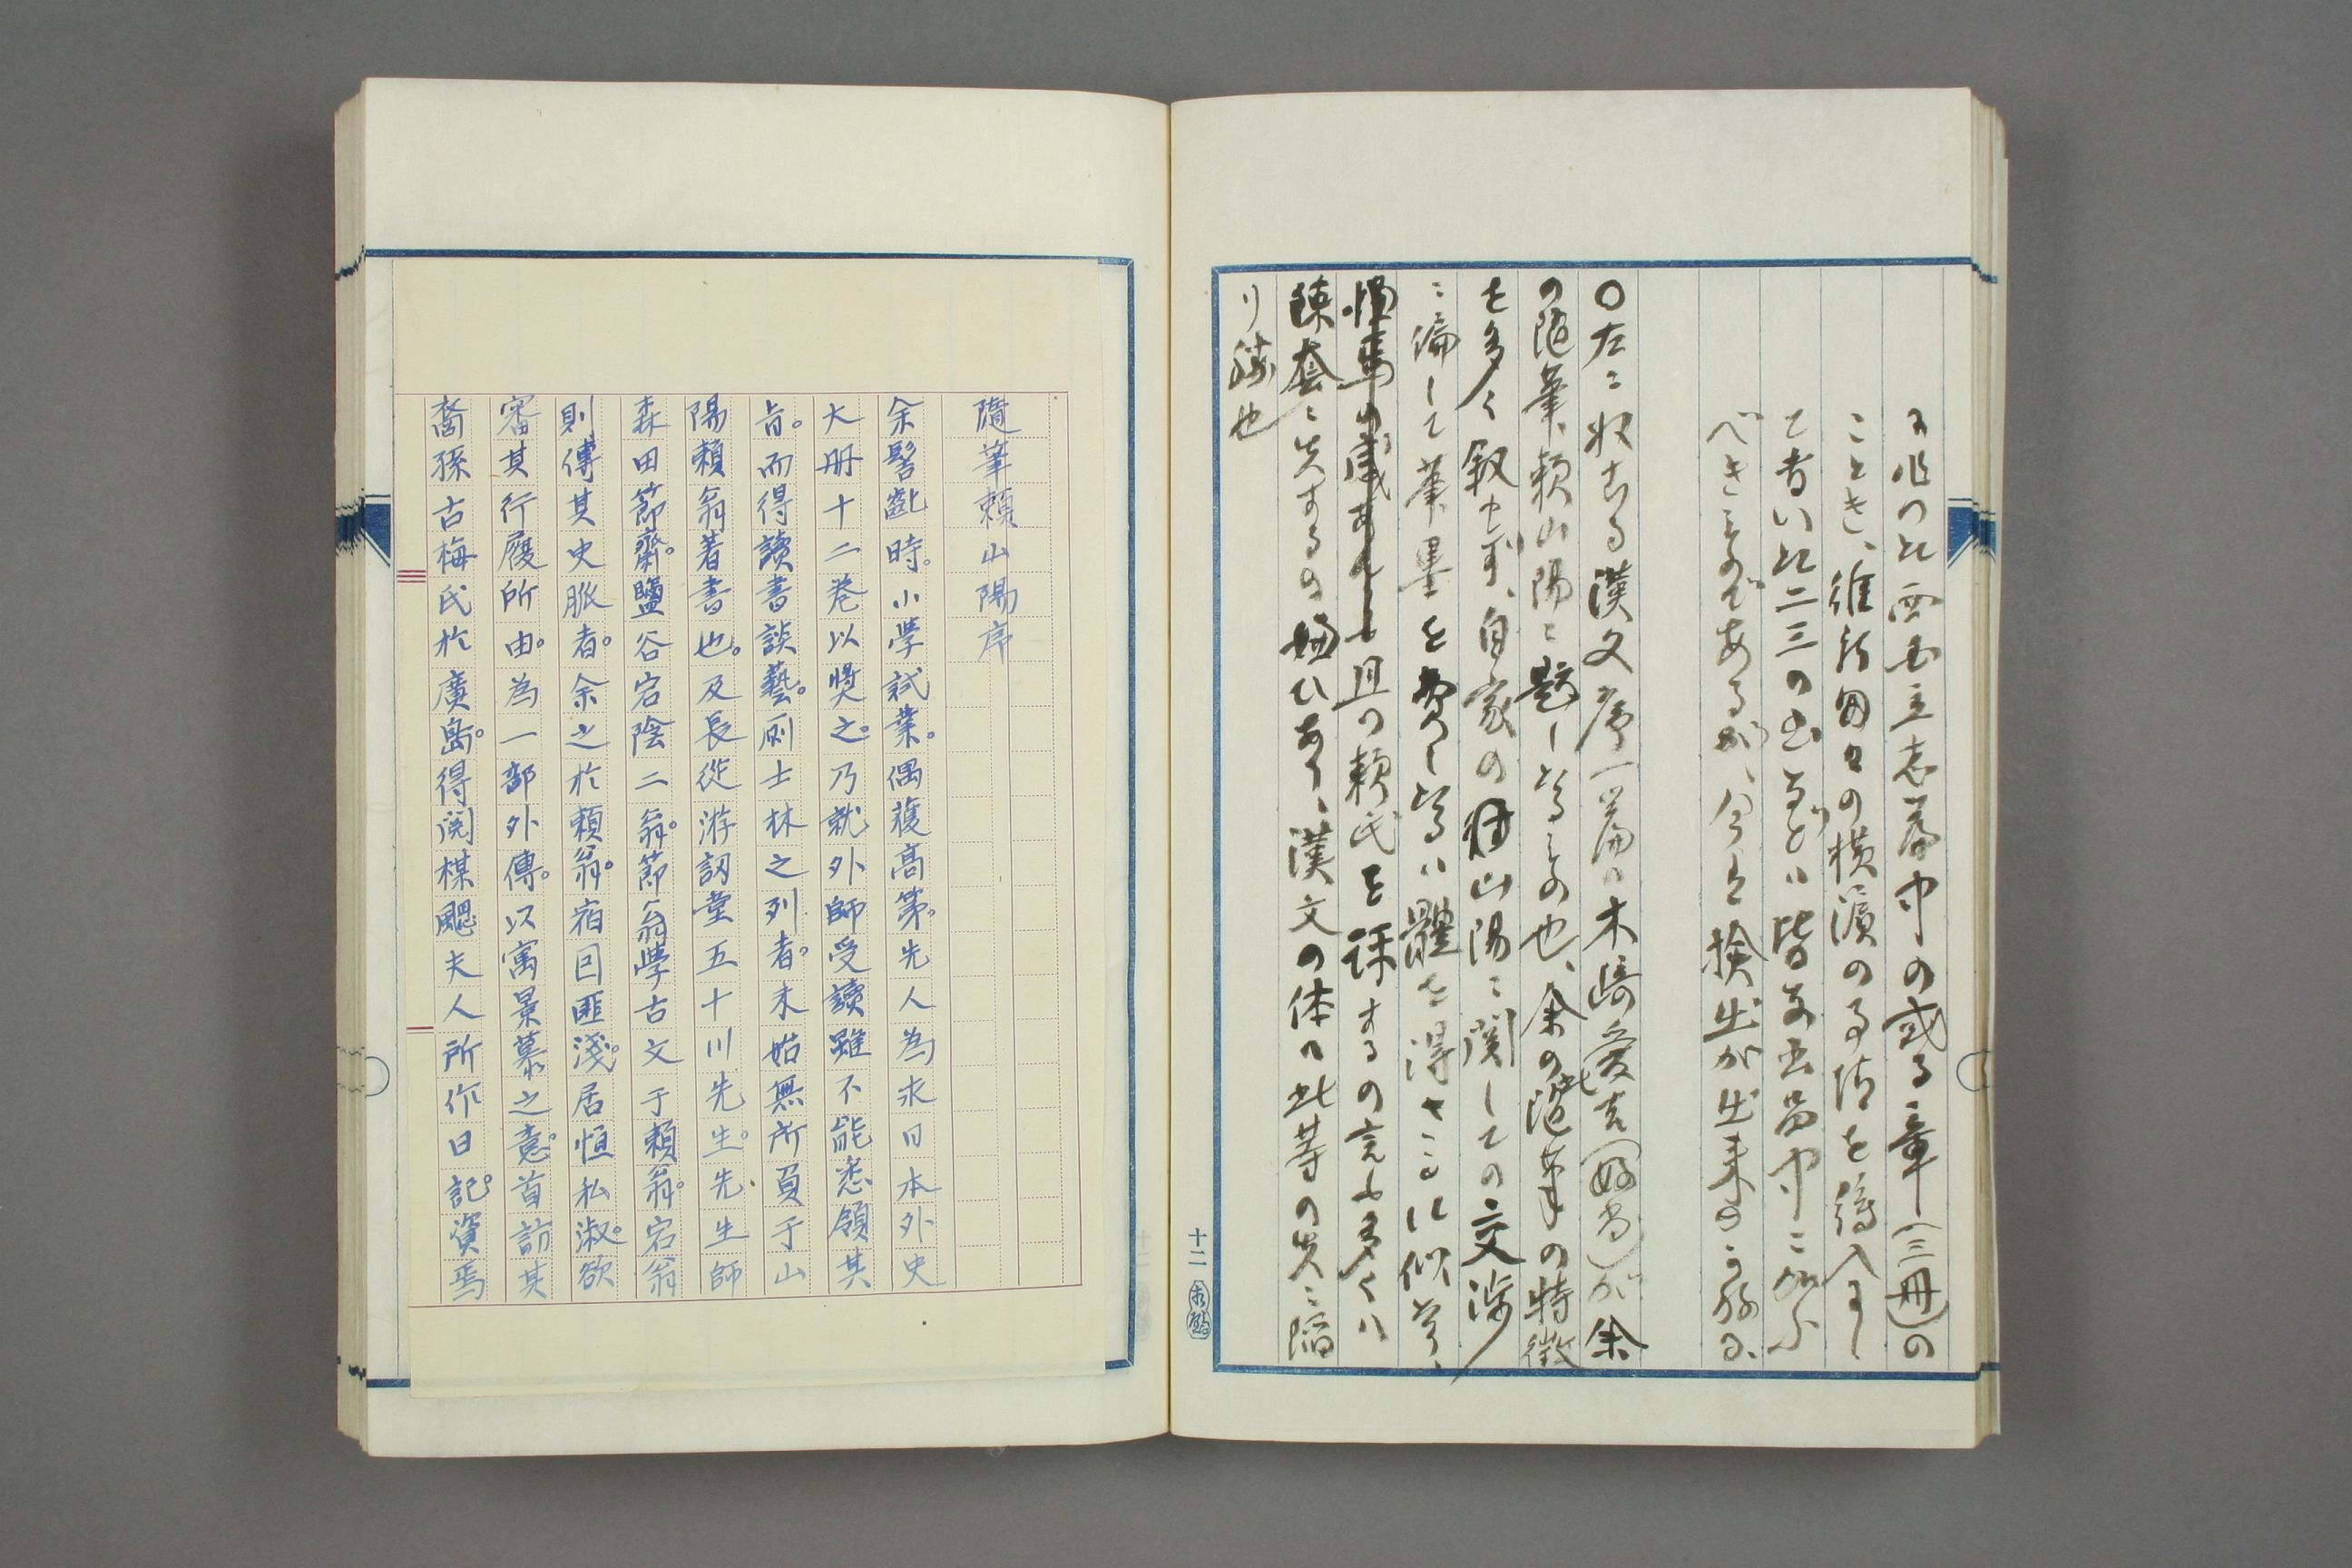 に作つた西国立志篇中の或る章(三冊)の
ことき、維新匆々の横濱の事情を織入れし
て者い た二三の出などハ皆な 中ニ加ふ
べきものであるが、今は検出が出来のこゝある、
〇左ニ收むる漢文序一篇ハ木崎愛吉(好尚)が余
の随筆、頼山陽ニ題し たるもの也、余の此随筆の特徴
を多く叙せず、自家の 山陽ニ関しての交渉
ニ偏して筆墨を費し たるハ體を得さるに似たり、
且つ頼氏を 稱するの言も多くハ
套ニ失するの嫌ひあり、漢文の体ハ此等の失ニ陥
り 也
十二
隨筆頼山陽序
余髫齔時。小學試業。偶獲高第。先人為求日本外史
大册十二卷以奬之。乃就外師受讀雖不能悉領其
旨。而得讀書談藝。厠士林之列者。未始無所負于山
陽頼翁著書也。及長從游訒堂五十川先生。先生師
森田節齋。鹽谷宕陰二翁。節翁學古文于頼翁。宕翁
則傳其史脈者。余之於頼翁。宿因匪淺。居恒私淑。欲
審其行履所由。為一部外傳。以寓景慕之意。首訪其
裔孫古梅氏於廣島。得閲楳颸夫人所作日記。資焉